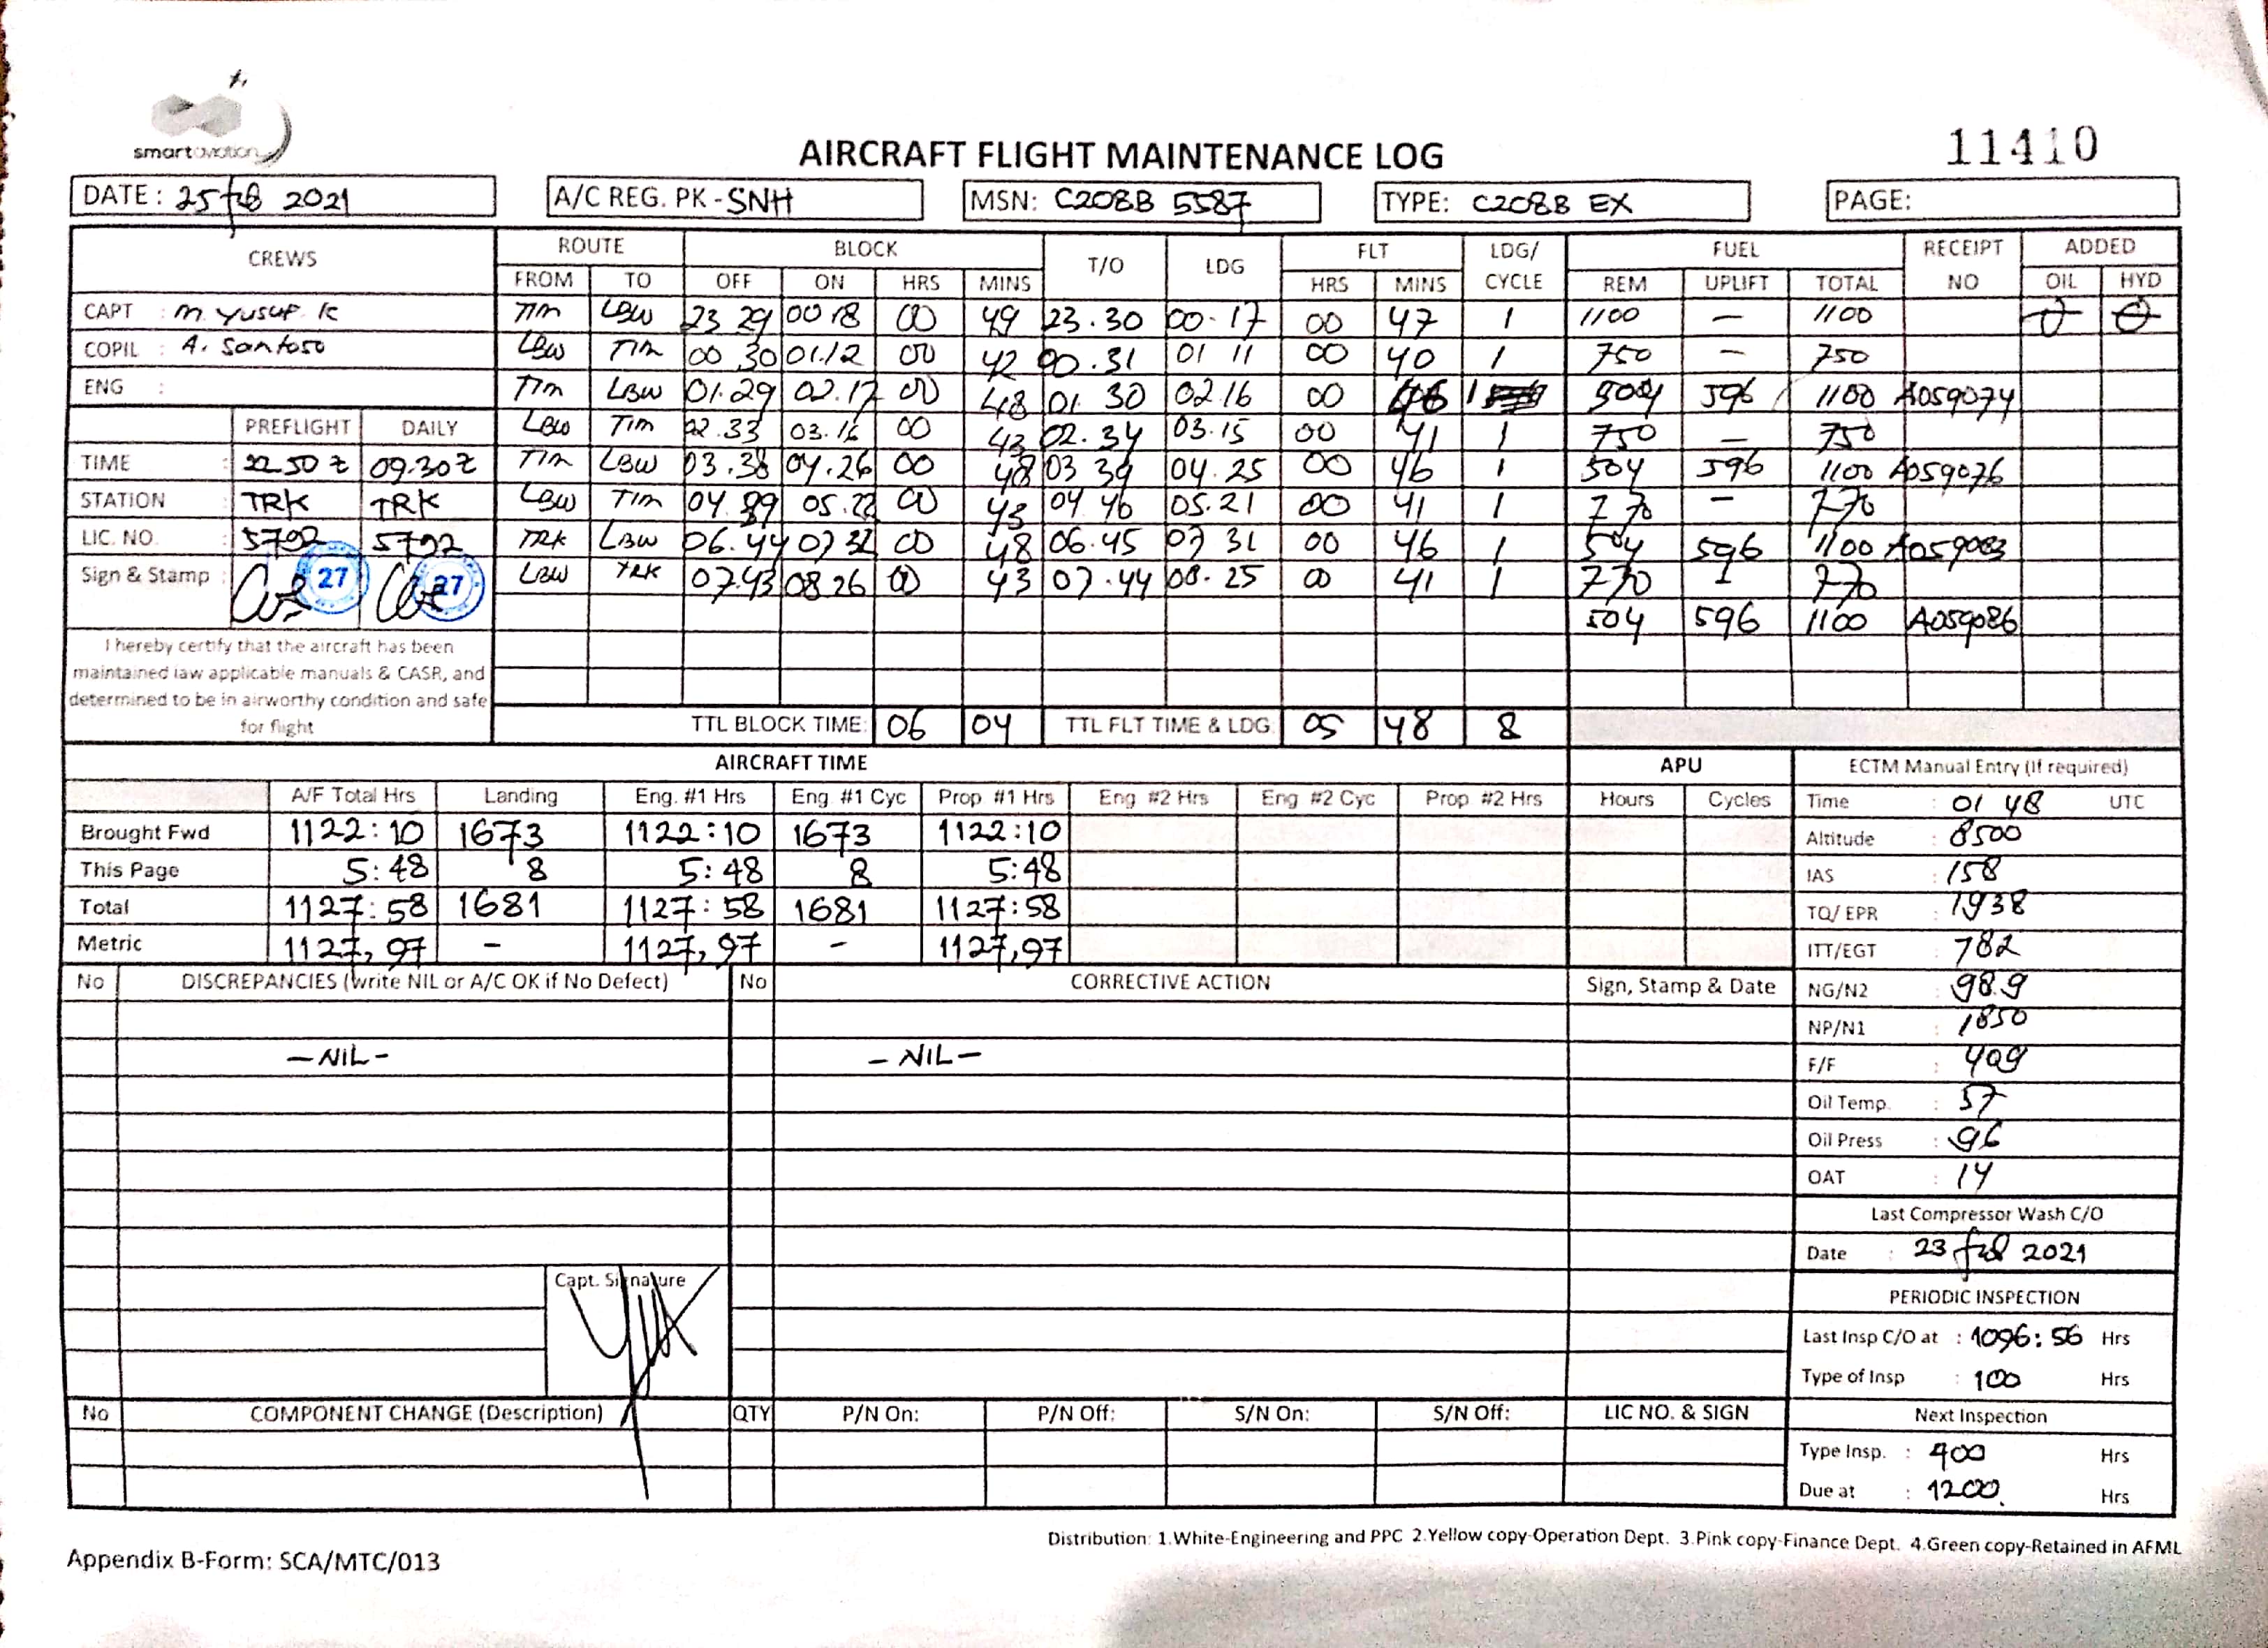 smartaviation
AIRCRAFT FLIGHT MAINTENANCE LOG
11410
DATE: 25 feb 2021 A/C REG. PK-SNH MSN: C208B 5587 TYPE: C208B EX PAGE:
CREWS ROUTE BLOCK T/O LDG FLT LDG/CYCLE FUEL RECEIPT NO ADDED
FROM TO OFF ON HRS MINS HRS MINS REM UPLIFT TOTAL OIL HYD
CAPT : M. Yusuf K TIM LBW 23 29 00 18 00 49 23.30 00.17 00 47 1 1100 – 1100
COPIL : A. Santoso LBW TIM 00 30 01.12 00 42 00.31 01 11 00 40 1 750 – 750
ENG : TIM LBW 01.29 02.17 00 48 01. 30 02.16 00 46 1 504 596 1100 A059074
PREFLIGHT DAILY LBW TIM 02.33 03.16 00 43 02.34 03.15 00 41 1 750 – 750
TIME : 22.50 Z 09.30 Z TIM LBW 03.38 04.26 00 48 03 39 04.25 00 46 1 504 596 1100 A059076
STATION : TRK TRK LBW TIM 04. 05.22 00 43 04 05.21 00 41 1 770 – 770
LIC. NO. : 5792 5792 TRK LBW 06.44 07 32 00 48 06.45 07 31 00 46 1 504 596 1100 A059083
Sign & Stamp : 27 27 LBW TRK 07.43 08 26 00 43 07.44 08.25 00 41 1 770 – 770
504 596 1100 A059086
I hereby certify that the aircraft has been
maintained iaw applicable manuals & CASR, and
determined to be in airworthy condition and safe
for flight
TTL BLOCK TIME: 06 04 TTL FLT TIME & LDG 05 48 8
AIRCRAFT TIME APU ECTM Manual Entry (If required)
A/F Total Hrs Landing Eng. #1 Hrs Eng. #1 Cyc Prop #1 Hrs Eng #2 Hrs Eng #2 Cyc Prop #2 Hrs Hours Cycles Time : 01 48 UTC
Brought Fwd 1122:10 1673 1122:10 1673 1122:10 Altitude : 8500
This Page 5:48 8 5:48 8 5:48 IAS : 158
Total 1127:58 1681 1127:58 1681 1127:58 TQ/ EPR : 1938
Metric 1127,97 – 1127,97 – 1127,97 ITT/EGT : 782
No DISCREPANCIES (write NIL or A/C OK if No Defect) No CORRECTIVE ACTION Sign, Stamp & Date NG/N2 : 98.9
NP/N1 : 1850
– NIL – – NIL – F/F : 409
Oil Temp. : 57
Oil Press : 96
OAT : 14
Last Compressor Wash C/O
Date : 23 feb 2021
Capt. Signature
PERIODIC INSPECTION
Last Insp C/O at : 1096:56 Hrs
Type of Insp : 100 Hrs
No COMPONENT CHANGE (Description) QTY P/N On: P/N Off: S/N On: S/N Off: LIC NO. & SIGN Next Inspection
Type Insp. : 400 Hrs
Due at : 1200. Hrs
Distribution: 1.White-Engineering and PPC 2.Yellow copy-Operation Dept. 3.Pink copy-Finance Dept. 4.Green copy-Retained in AFML
Appendix B-Form: SCA/MTC/013